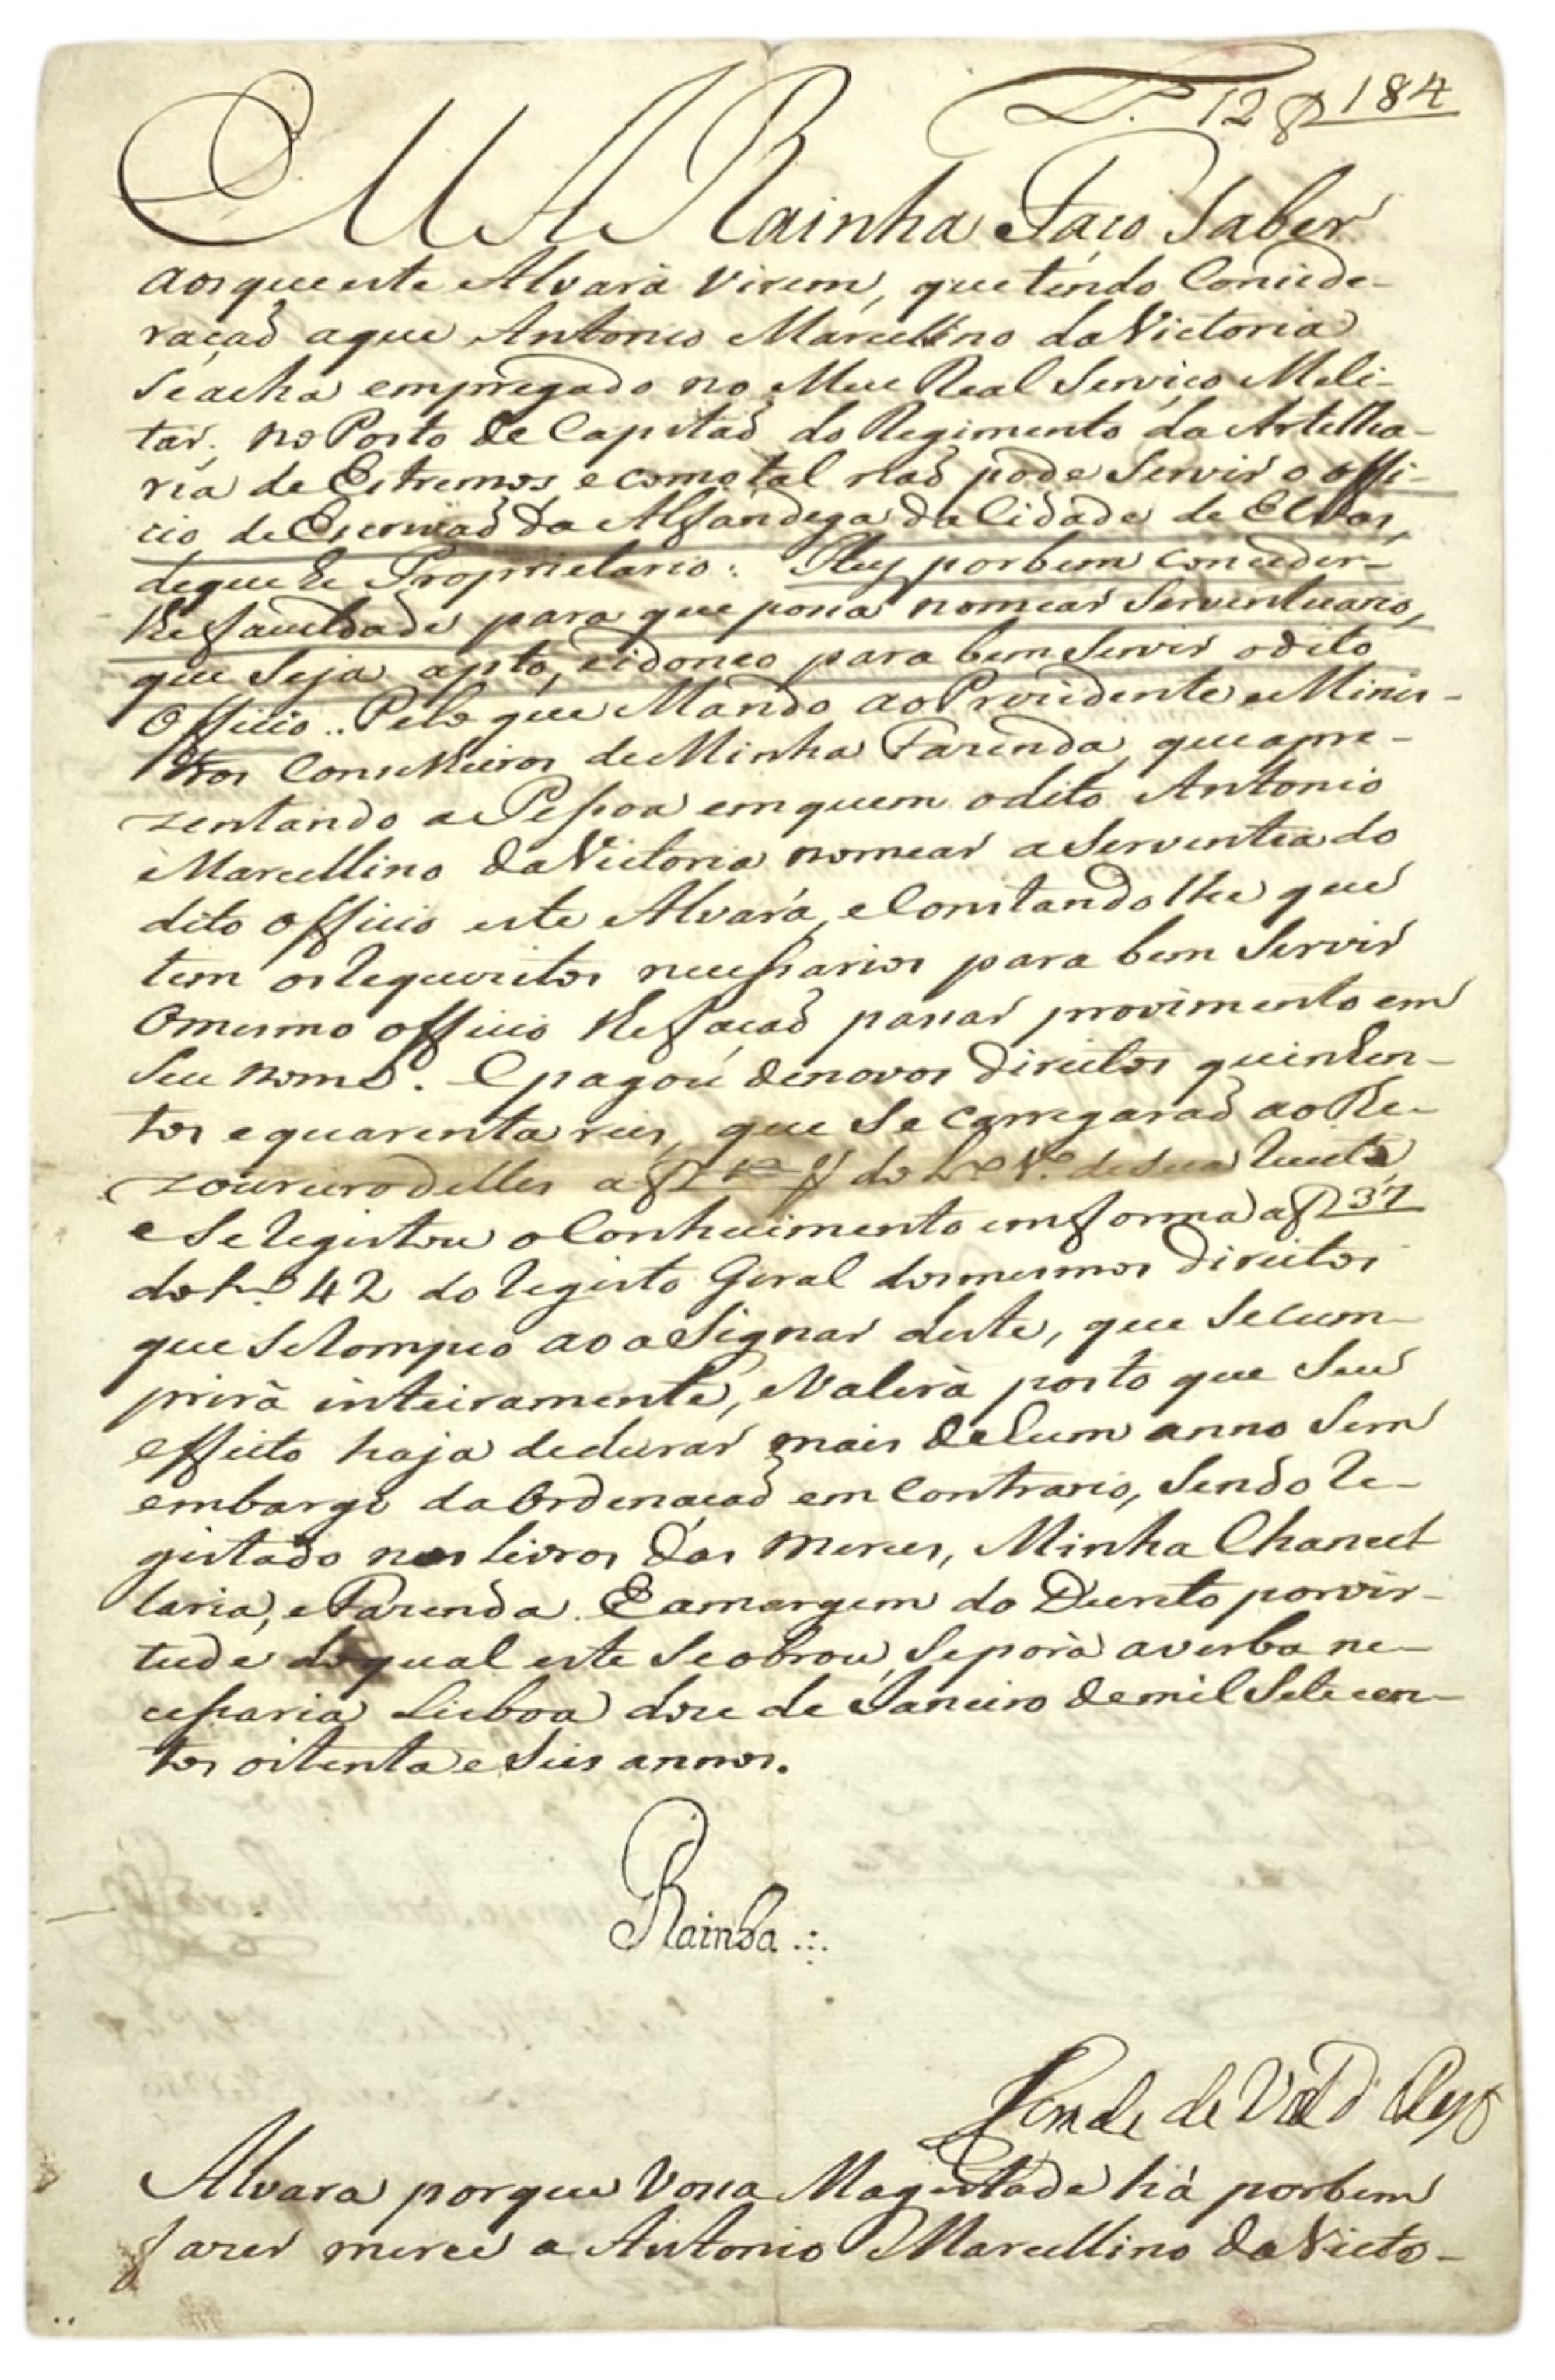 L.º 12 f 184
EU A Rainha Faço Saber
aos que este Alvará virem, que tendo Concide-
raçaõ aque Antonio Marcellino da Victoria
se acha empregado no Meu Real Serviço Meli-
tar, no Posto de Capitaõ do Regimento da Artelha-
ria de Estremos, e como tal naõ pode servir o offi-
cio de Escrivaõ da Alfandega da Cidade de Elvas,
de que he Proprietario: Hey por bem conceder-
lhe faculdade para que possa nomear Serventuario,
que seja apto, e idoneo para bem servir o dito
Officio.. Pelo que Mando ao Prezidente e Minis-
tros Conselheiros de Minha Fazenda, que apre-
zentando a Pessoa em quem o dito Antonio
Marcellino da Victoria nomear a Serventia do
dito Officio este Alvará, e Constandolhe que
tem os requezitos necessarios para bem servir
o mesmo officio lhe façaõ passar provimento em
seu nome. E pagou de novos direitos quinhen-
tos e quarenta reis, que se carregaraõ ao The-
zoureiro delles a f do L.º de sua receita,
e se registou o Conhecimento em forma a f 37
do L.º 42 do registo Geral dos mesmos direitos
que se rompeo ao asignar deste, que se cum-
prirà inteiramente, e valerà posto que seu
effeito haja de durar mais de hum anno sem
embargo da Ordenaçaõ em contrario, sendo re-
gistado nos livros das merces, Minha Chancel
laria, e Fazenda. E a margem do Decreto por vir-
tude do qual este se obrou, se porà a verba ne-
cessaria Lisboa doze de Janeiro de mil sete cen-
tos oitenta e seis annos.
Rainha
Conde de Val d Reys
Alvara porque Vossa Magestade há por bem
fazer merce a Antonio Marcellino da Victo-